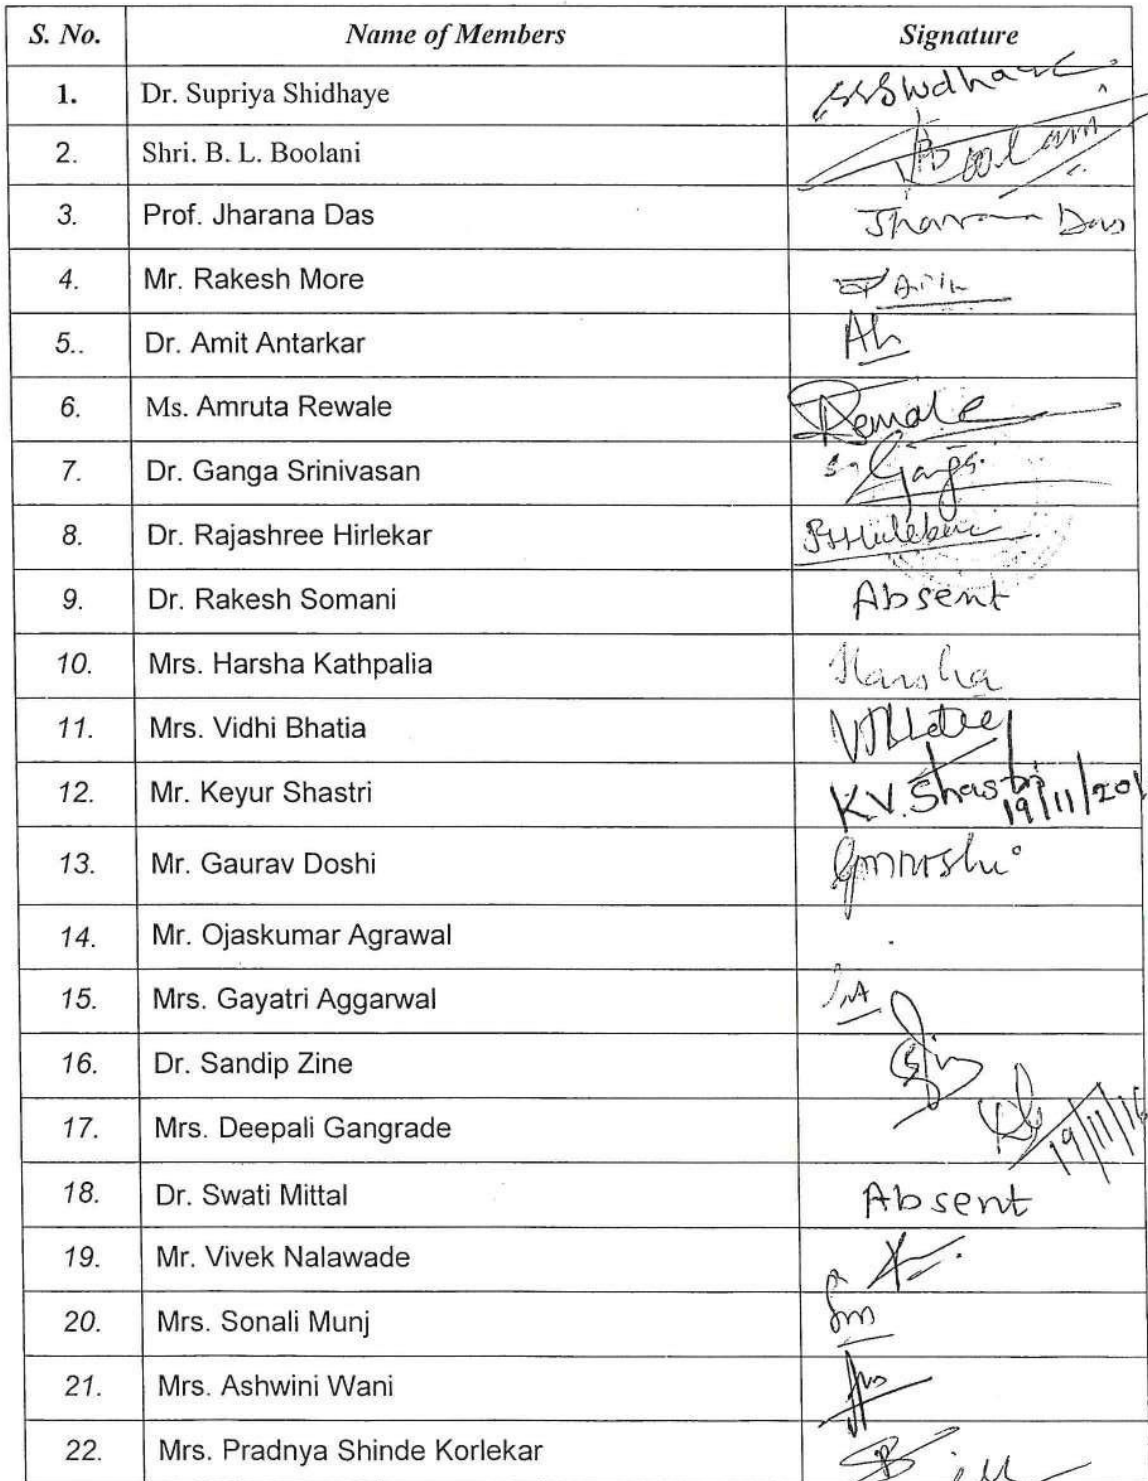 S. No. Name of Members Signature
1. Dr. Supriya Shidhaye
2. Shri. B. L. Boolani Boolani
3. Prof. Jharana Das Jharana Das
4. Mr. Rakesh More
5.. Dr. Amit Antarkar
6. Ms. Amruta Rewale Rewale
7. Dr. Ganga Srinivasan
8. Dr. Rajashree Hirlekar
9. Dr. Rakesh Somani Absent
10. Mrs. Harsha Kathpalia Harsha
11. Mrs. Vidhi Bhatia
12. Mr. Keyur Shastri K.V. Shastri 19/11/201
13. Mr. Gaurav Doshi
14. Mr. Ojaskumar Agrawal
15. Mrs. Gayatri Aggarwal
16. Dr. Sandip Zine
17. Mrs. Deepali Gangrade 19/11/16
18. Dr. Swati Mittal Absent
19. Mr. Vivek Nalawade
20. Mrs. Sonali Munj Sm
21. Mrs. Ashwini Wani
22. Mrs. Pradnya Shinde Korlekar